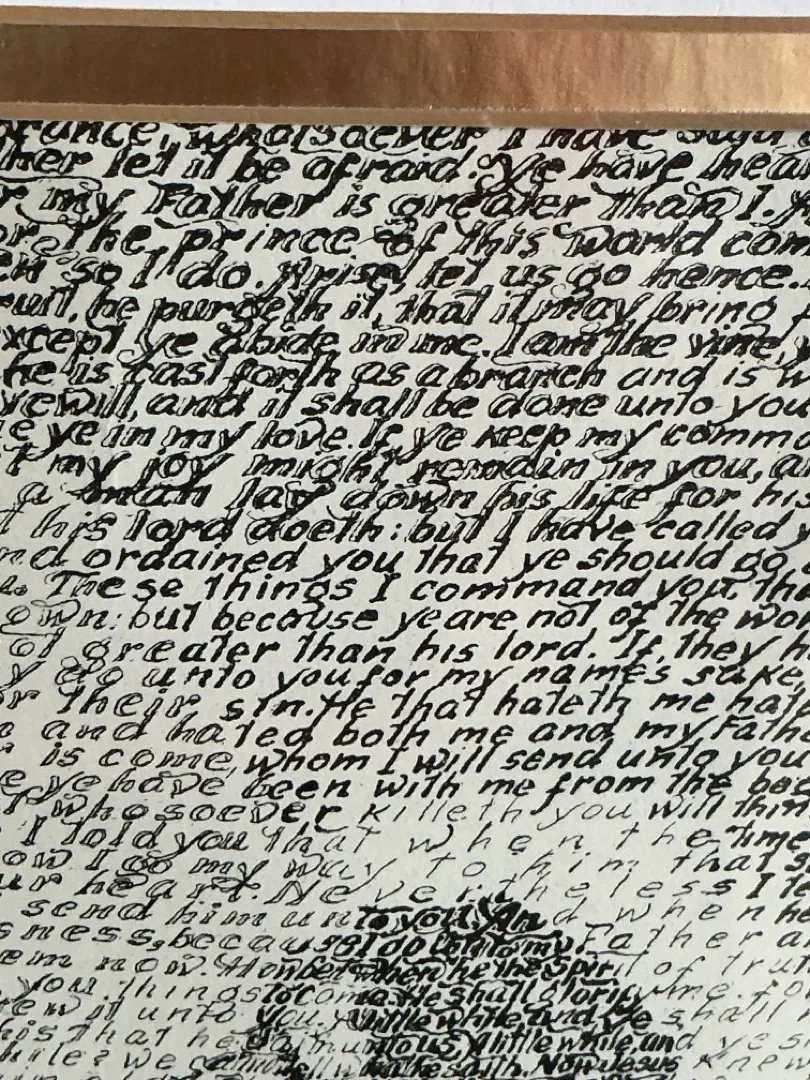 whatsoever I have said
her let it be afraid. Ye have hea
r my Father is greater than I. 
or the prince of this world com
en so I do. Arise, let us go hence.
fruit, he purgeth it, that it may bring f
xcept ye abide in me. I am the vine, y
he is cast forth as a branch and is w
ye will, and it shall be done unto you
e ye in my love. If ye keep my comma
t my joy might remain in you, a
a man lay down his life for hi
t his lord doeth: but I have called y
nd ordained you that ye should go a
e. These things I command you, tha
own: but because ye are not of the wor
ot greater than his lord. If they h
y do unto you for my names sake,
or their sin. He that hateth me hat
n and hated both me and my Fathe
r is come, whom I will send unto you
e ye have been with me from the beg
t whosoever killeth you will thin
I told you that when the time
ow I go my way to him that s
ur heart. Nevertheless I te
send him unto you. And when h
sness, because I go to my Father a
em now. Howbeit when he the Spirit of trut
you things to come. He shall glorify me. fo
ew it unto you. A little while, and ye shall
his that he saith unto us, A little while, and ye s
hile? we cannot tell what he saith. Now Jesus knew